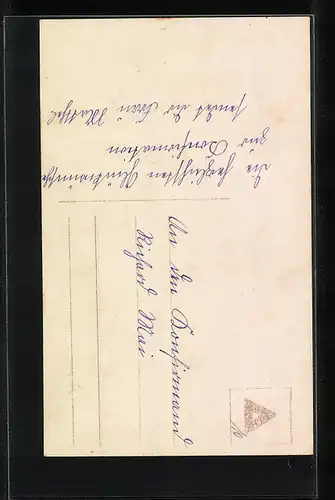 Die herzlichsten Glückwünsche
zur Konfirmation
sendet dir Frau
An den Konfirmand
Richard Mai